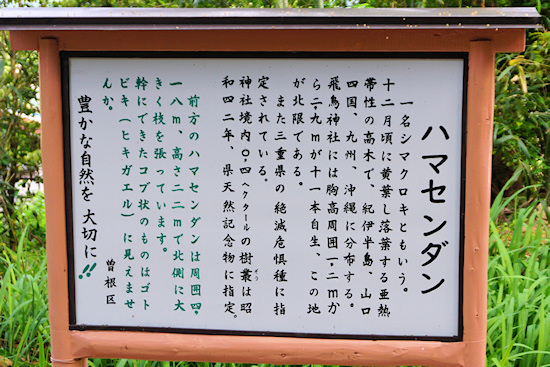 ハマセンダン
一名シマクロキともいう。
十二月頃に黄葉し落葉する亜熱
帯性の高木で、紀伊半島、山口
四国、九州、沖縄に分布する。
飛鳥神社には胸高周囲一・二mか
ら二・九mが十一本自生、この地
が北限である。
また三重県の絶滅危惧種に指
定されている。
神社境内〇・四ヘクタールの樹叢は昭
和四二年、県天然記念物に指定。
前方のハマセンダンは周囲四・
一八m、高さ二二mで北側に大
きく枝を張っています。
幹にできたコブ状のものはゴト
ビキ（ヒキガエル）に見えませ
んか。
豊かな自然を 大切に!!
曽根区
ぞう